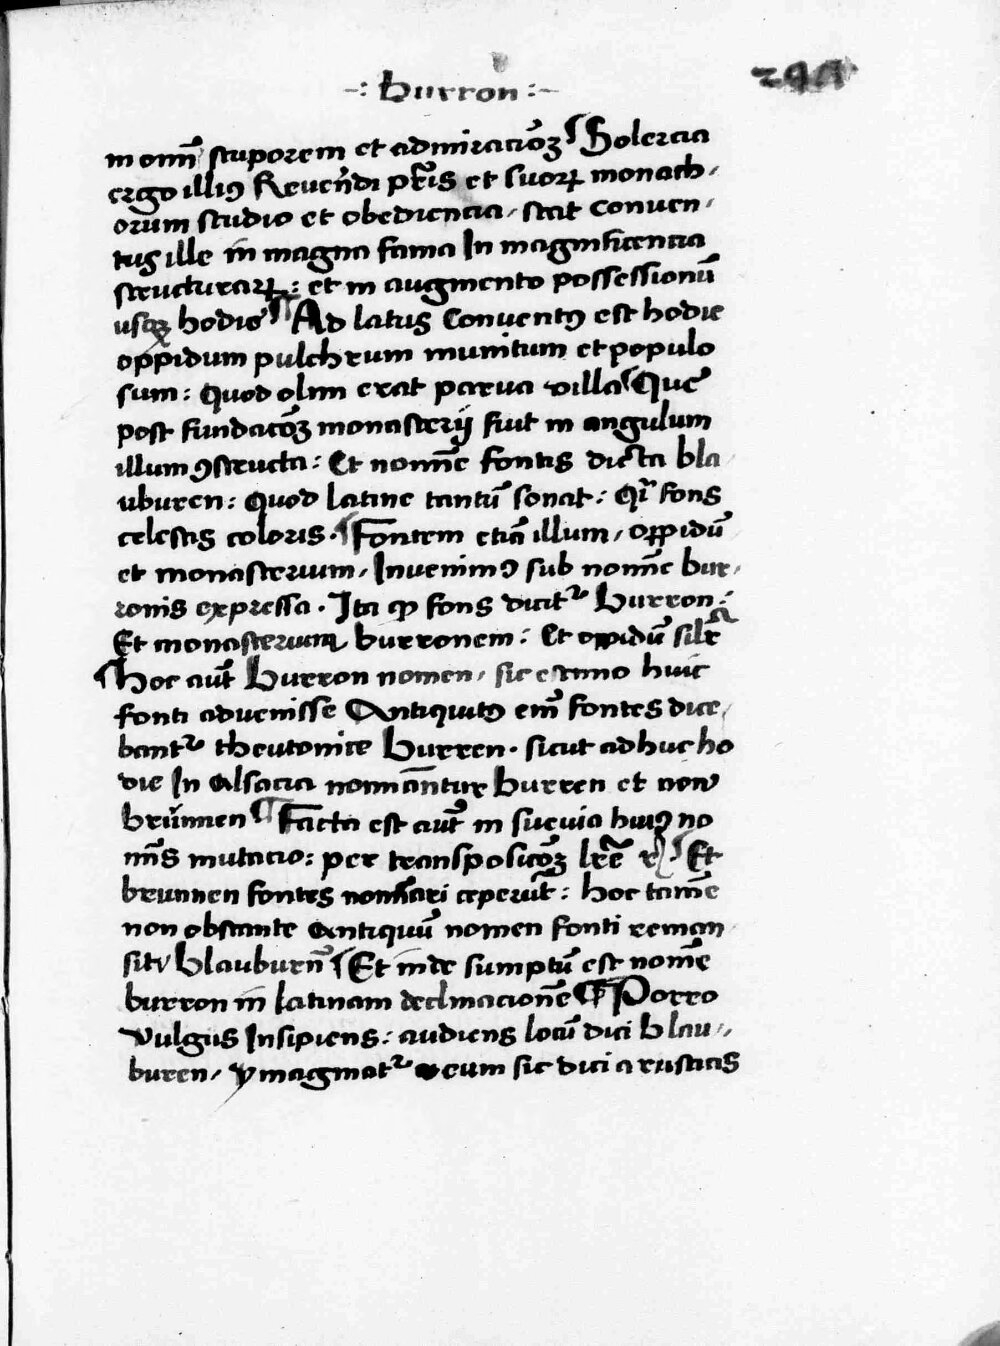 -: Burron :-
in om̄i stuporem et admiracōꝫ ¶ Solercia
ergo illiꝰ Reuerēdi pr̄is et suoꝝ monach-
orum studio et obediencia, stat Conuen-
tus ille in magna fama In magnificencia
structuraꝝ: et in augmento possessionū
usqꝫ hodie ¶ Ad latus Conuentꝰ est hodie
oppidum pulchrum munitum et populo
sum: Quod olim erat parua villa ¶ Que
post fundacōꝫ monasterij fuit in angulum
illum ꝯstructa: Et nomīe fontis dicta bla
uburen: Quod latine tantū sonat: Qr̄ fons
celestis coloris. ¶ Fontem etiā illum, oppidū
et monasterium, Inuenimꝰ sub nomīe bur-
ronis expressa. Ita ꝙ fons dicit᷑ Burron:
Et monasterium burronem: Et oppidū silr̄
¶ Hoc aūt Burron nomen, sic estimo huic
fonti aduenisse Antiquitꝰ em̄ fontes dice-
bant᷑ theutonice Burren. sicut adhuc ho
die In Alsacia nomīantur Burren et non
brūnnen ¶ Facta est aūt in sueuia huiꝰ no
mīs mutacio: per transposicōꝫ lr̄e r, ¶ Et
brunnen fontes nomīari ceperūt: hoc tamē
non obstante Antiquū nomen fonti reman-
sit Blauburn̄ ¶ Et inde sumptū est nomē
burron in latinam declinacionē ¶ Porro
vulgus Insipiens: audiens locū dici blau-
buren, ymaginat᷑ eum sic dici a rusticis